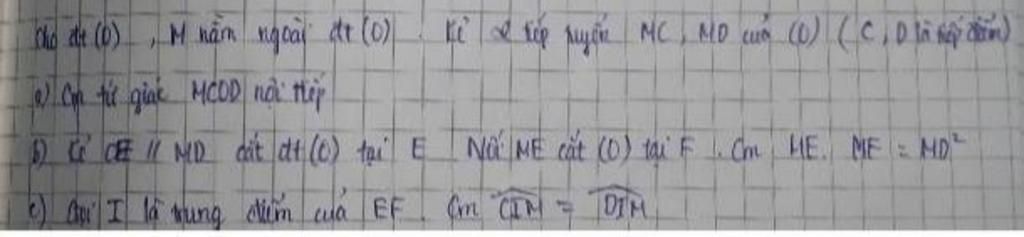 Cho đt (O) , M nằm ngoài đt (O) . Kẻ 2 tiếp tuyến MC, MD của (O) ( C, D là tiếp điểm)
a) Cm tứ giác MCOD nội tiếp
b) Kẻ CE // MD cắt đt (O) tại E Nối ME cắt (O) tại F . Cm ME. MF = MD²
c) Gọi I là trung điểm của EF . Cm CIM = DIM